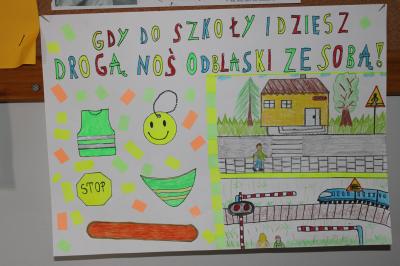 GDY DO SZKOŁY IDZIESZ
DROGĄ, NOŚ ODBLASKI ZE SOBĄ!
STOP